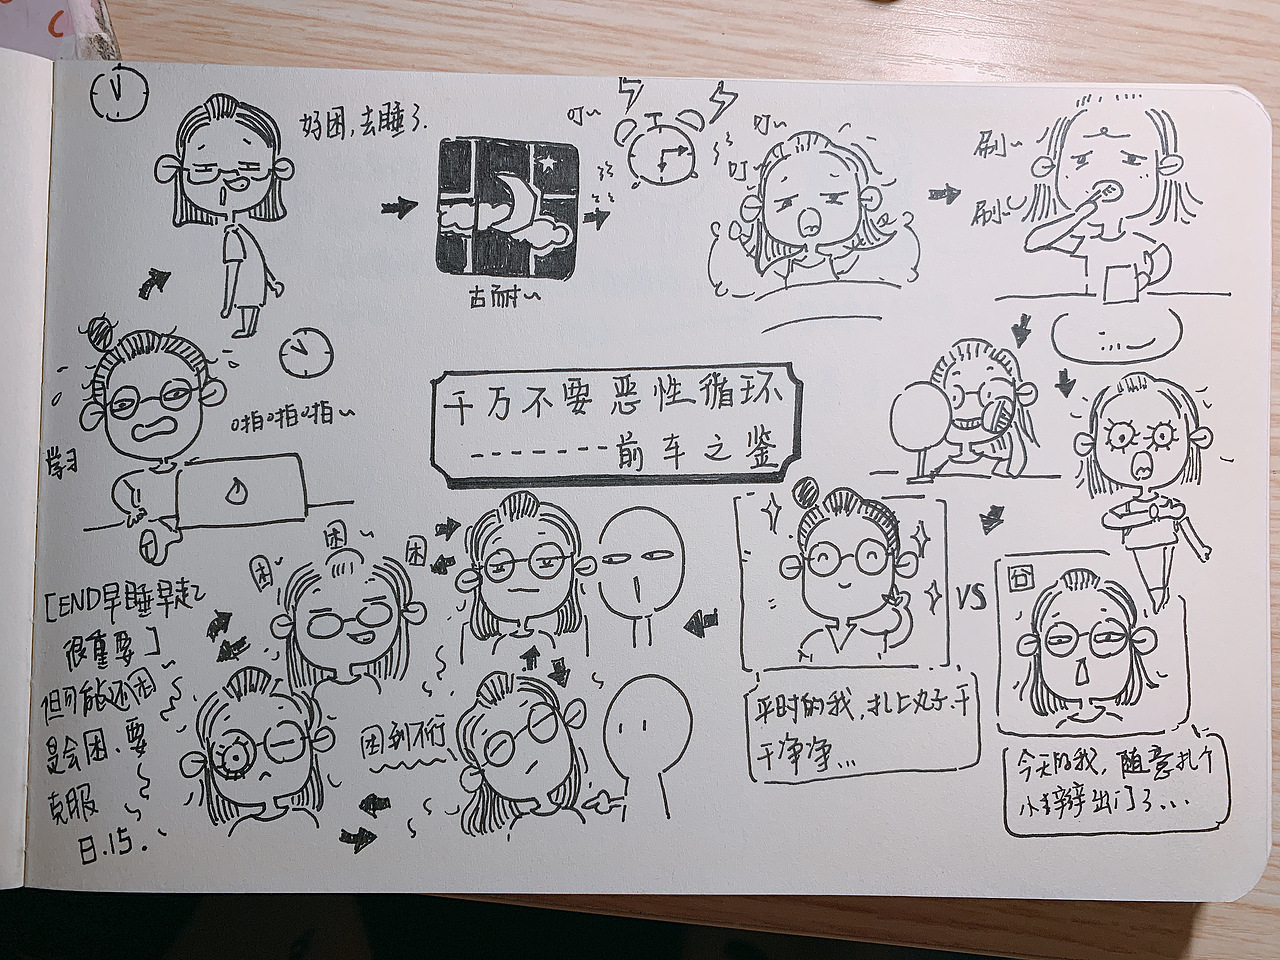 好困,去睡了.
叮~
叮~
叮~
刷~
刷~
古耐~
学习
啪啪啪~
千万不要恶性循环
-------前车之鉴
困
困~
困
困到不行
VS
囧
平时的我,扎上丸子.干
干净净...
今天的我,随意扎个
小辫出门了...
[END早睡早起
很重要]
但可能还
是会困.要
克服
日.15.